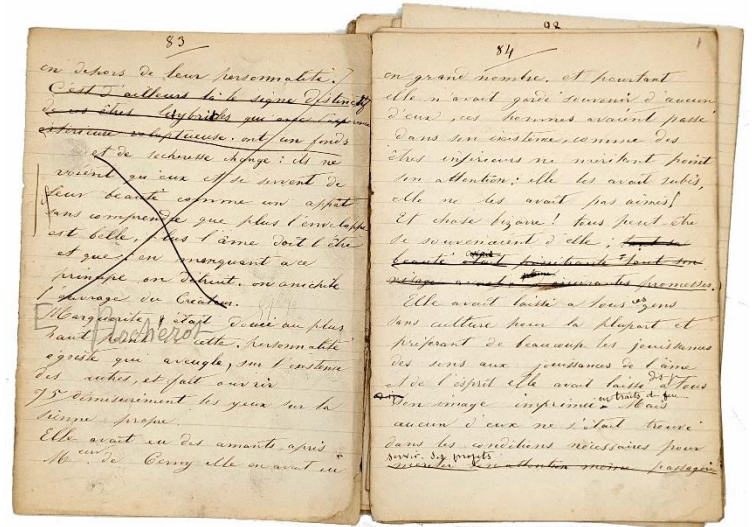 83
en dehors de leur personnalité.
C'est d'ailleurs là le signe distinctif
de ces êtres hybrides qui avec l'apparence
extérieure voluptueuse ont un fonds
et de secheresse étrange : ils ne
voient qu'eux et se servent de
leur beauté comme un appât
sans comprendre que plus l'enveloppe
est belle, plus l'âme doit l'être
et que en manquant a ce
principe on détruit, on anéchite
l'ouvrage du Créateur.
Marguerite était douée au plus
haut point cette personnalité
égoiste qui aveugle, sur l'existence
des autres, et fait ouvrir
75 démesurément les yeux sur la
sienne propre.
Elle avait eu des amants, après
M de Cerny elle en avait eu
98
84
en grand nombre. et pourtant
elle n'avait gardé souvenir d'aucun
d'eux, ces hommes avaient passé
dans son existence, comme des
êtres inférieurs ne méritant point
son attention ; elle les avait subis,
elle ne les avait pas aimés !
Et chose bizarre ! tous peut être
se souvenaient d'elle ; tant sa
beauté était pénétrante tant son
enivrantes promesses.
Elle avait laissé a tous ces gens
sans culture pour la plupart et
préférant de beaucoup les jouissances
des sens aux jouissances de l'âme
et de l'esprit elle avait laissé dis-je a tous
son image imprimée en traits de feu Mais
aucun d'eux ne s'était trouvé
dans les conditions nécessaires pour
servir ses projets
attention même passagère